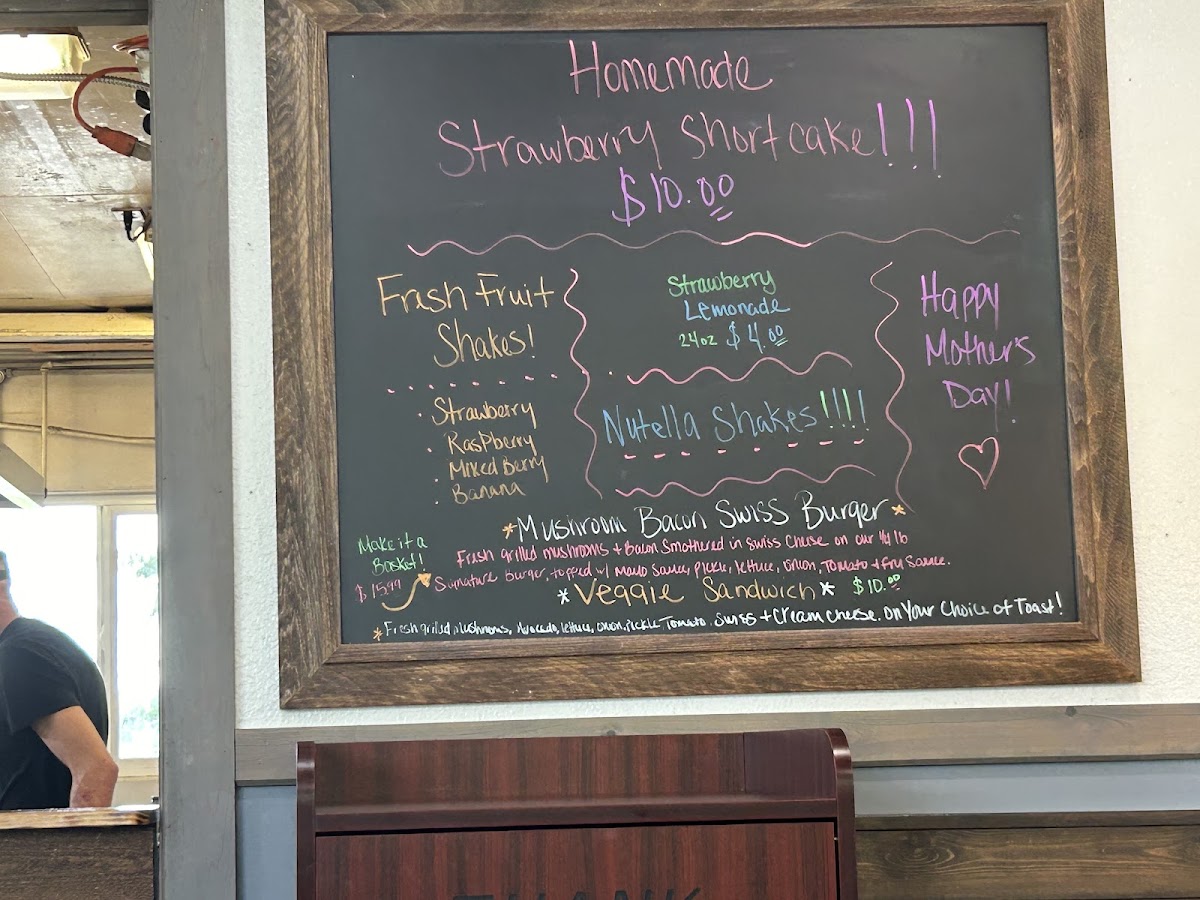 Homemade
Strawberry Shortcake!!!
$10.00
Fresh Fruit
Shakes!
Strawberry
Raspberry
Mixed Berry
Banana
Strawberry
Lemonade
24oz $4.00
Nutella Shakes!!!!
Happy
Mother's
Day!
*Mushroom Bacon Swiss Burger*
Fresh grilled mushrooms + Bacon Smothered in Swiss Cheese on our 1/4 lb
Signature Burger, topped w/ Mayo Sauce, pickle, lettuce, Onion, Tomato + Fry Sauce.
Make it a
Basket!
$15.99
*Veggie Sandwich* $10.00
*Fresh grilled Mushrooms, Avocado, lettuce, onion, pickle Tomato. Swiss + Cream Cheese. On Your Choice of Toast!
THANK